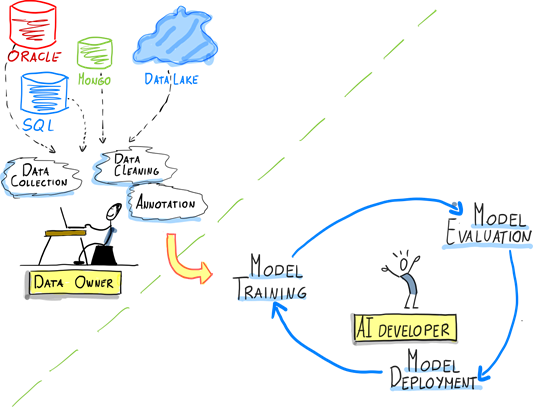 ORACLE
MONGO
DATA LAKE
SQL
DATA
COLLECTION
DATA
CLEANING
ANNOTATION
DATA OWNER
MODEL
TRAINING
MODEL
EVALUATION
AI DEVELOPER
MODEL
DEPLOYMENT